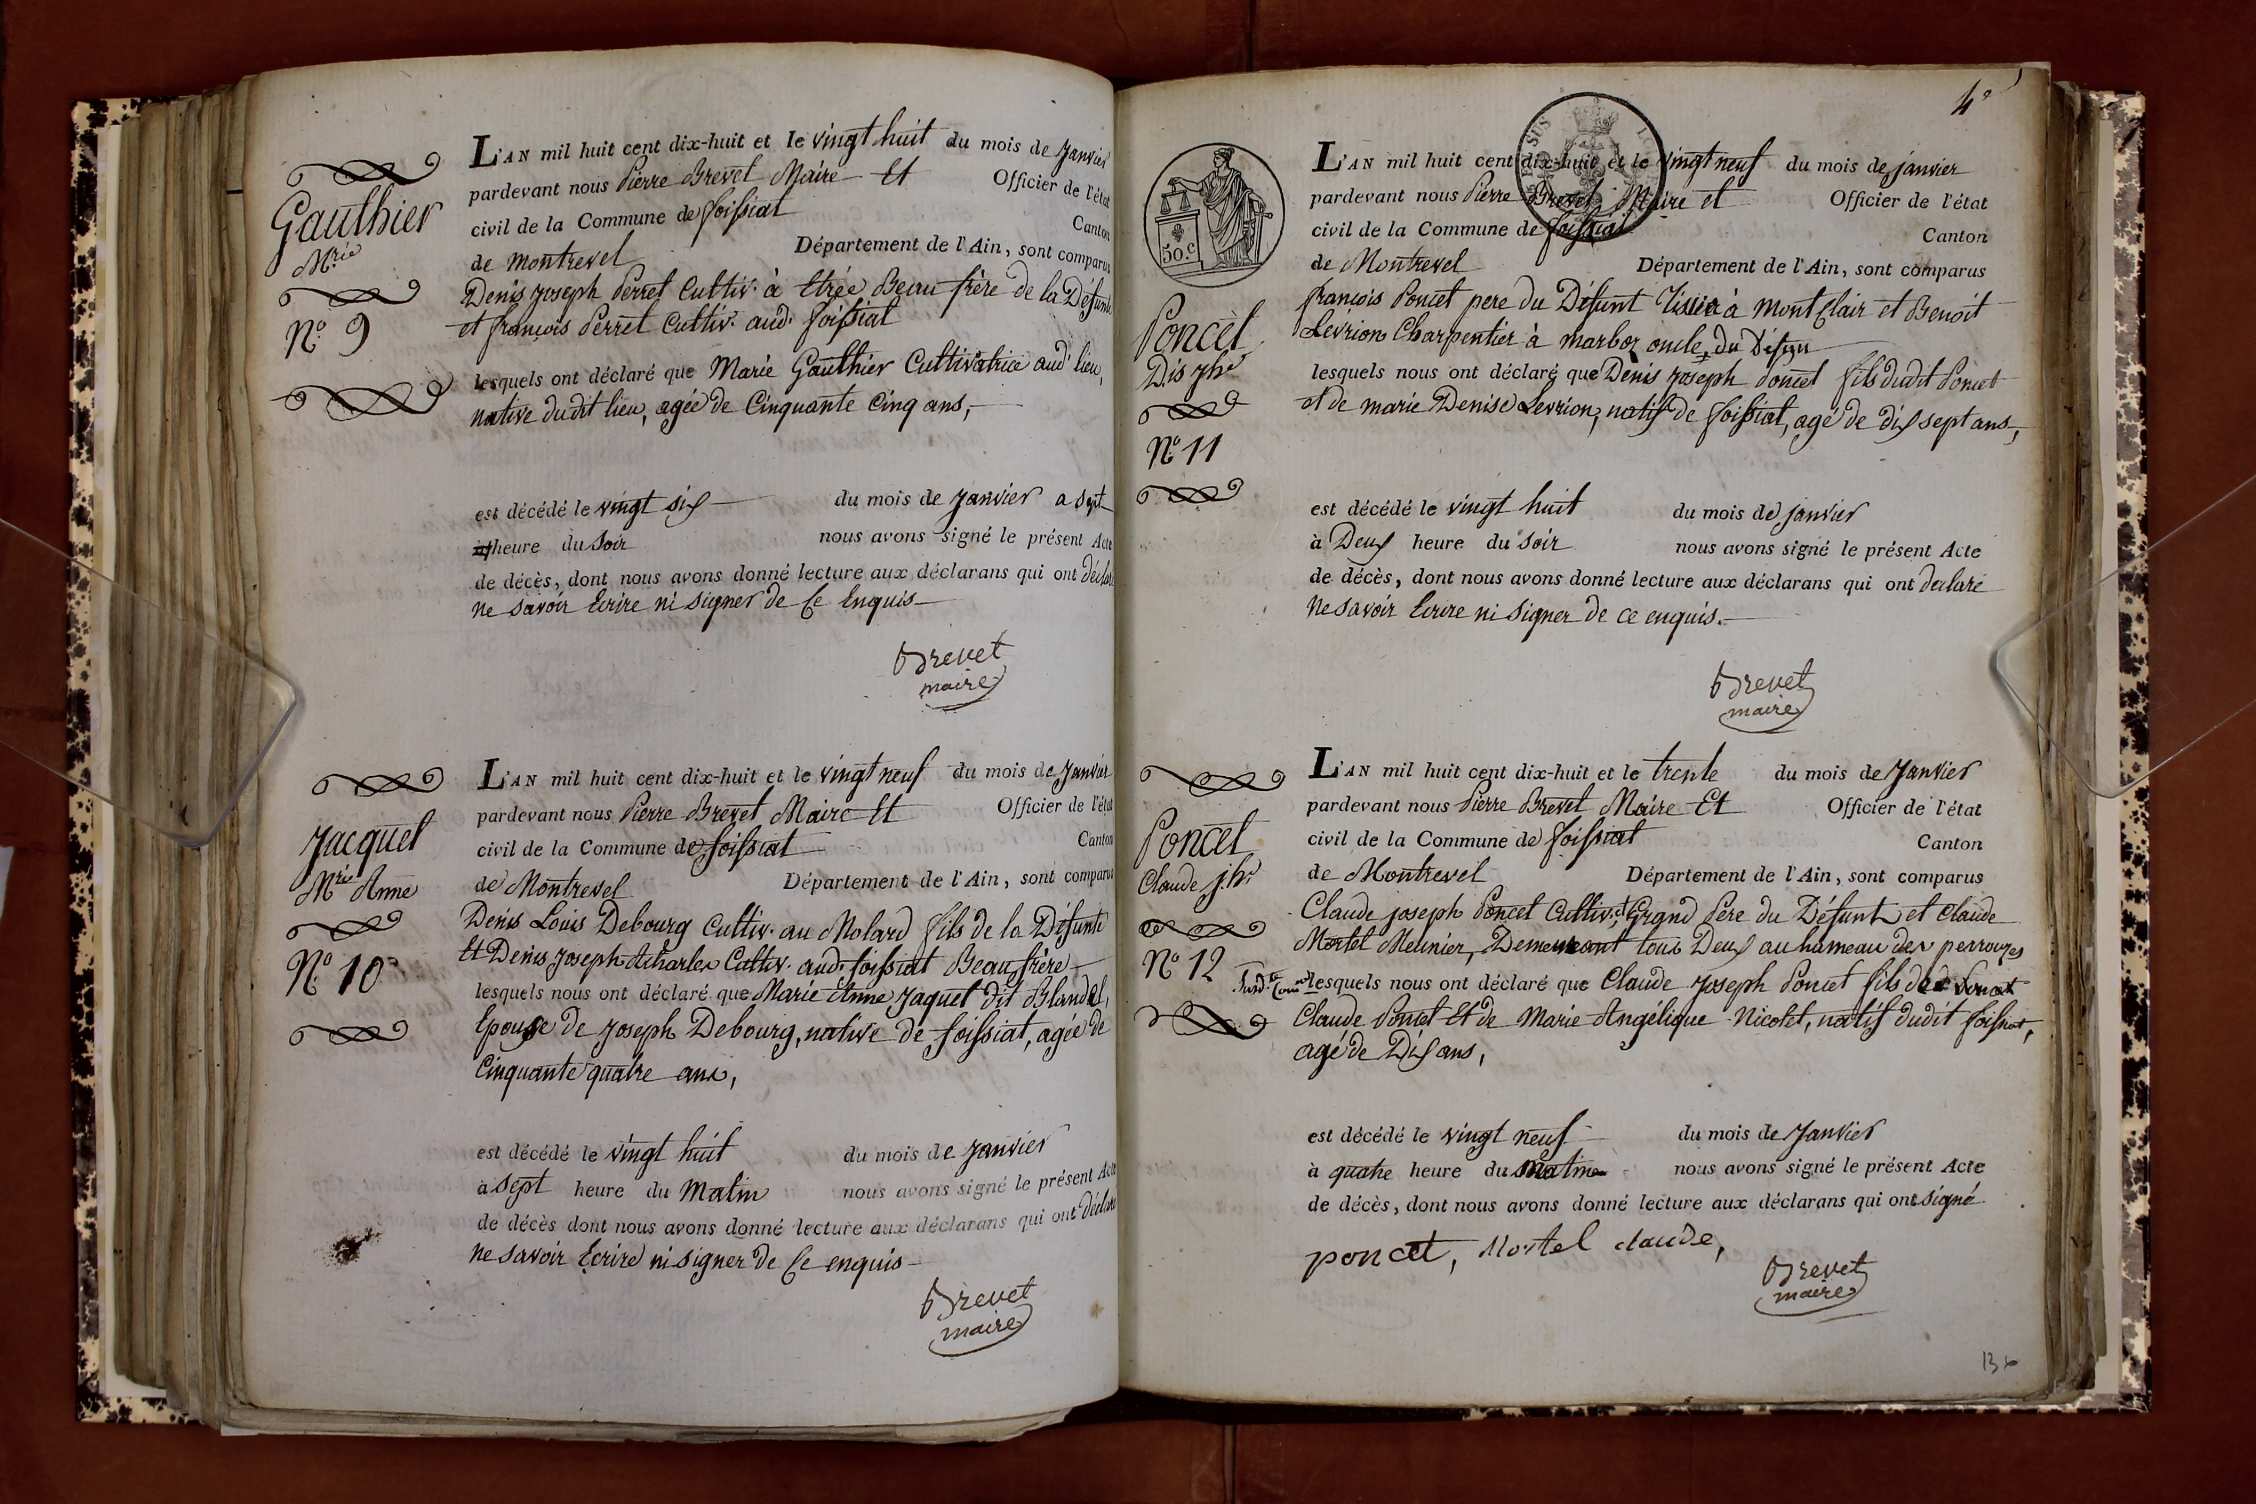 Gauthier
Mrie
No. 9
L'AN mil huit cent dix-huit et le vingt huit du mois de Janvier
pardevant nous Pierre Brevet Maire Et Officier de l'état
civil de la Commune de foissiat Canton
de montrevel Département de l'Ain, sont comparus
Denis Joseph Perret Cultiv. à Etrée Beau frère de la Défunte
et françois Perret Cultiv. aud. foissiat
lesquels ont déclaré que Marie Gauthier Cultivatrice aud lieu,
native dudit lieu, agée de Cinquante Cinq ans,
est décédé le vingt six du mois de Janvier a sept
heure du Soir nous avons signé le présent Acte
de décès, dont nous avons donné lecture aux déclarans qui ont déclaré
ne savoir Ecrire ni signer de Ce Enquis
Brevet
maire
Jacquet
Mrie Anne
No. 10
L'AN mil huit cent dix-huit et le vingt neuf du mois de Janvier
pardevant nous Pierre Brevet Maire Et Officier de l'état
civil de la Commune de foissiat Canton
de Montrevel Département de l'Ain, sont comparus
Denis Louis Debourg Cultiv. au Molard fils de la Défunte
Et Denis Joseph Charles Cultiv. aud. foissiat Beau frère
lesquels nous ont déclaré que Marie Anne Jaquet dit Blandel,
Epouse de Joseph Debourg, native de foissiat, agée de
Cinquante quatre ans,
est décédé le vingt huit du mois de Janvier
à sept heure du Matin nous avons signé le présent Acte
de décès dont nous avons donné lecture aux déclarans qui ont déclaré
ne savoir Ecrire ni signer de Ce enquis
Brevet
maire
4e
50.c
Poncet
Dis Jhe
No 11
L'AN mil huit cent dix-huit et le vingt neuf du mois de janvier
pardevant nous Pierre Brevet Maire et Officier de l'état
civil de la Commune de foissiat Canton
de Montrevel Département de l'Ain, sont comparus
françois Poncet pere du Défunt à Mont Clair et Benoit
Levrion Charpentier à marboz oncle du Défun
lesquels nous ont déclaré que Denis Joseph Poncet fils dudit Poncet
et de marie Denise Levrion, natif de foissiat, agé de dix sept ans,
est décédé le vingt huit du mois de janvier
à Deux heure du Soir nous avons signé le présent Acte
de décès, dont nous avons donné lecture aux déclarans qui ont déclaré
ne savoir Ecrire ni signer de ce enquis.
Brevet
maire
Poncet
Claude jhe
No 12
L'AN mil huit cent dix-huit et le trente du mois de Janvier
pardevant nous Pierre Brevet Maire Et Officier de l'état
civil de la Commune de foissiat Canton
de Montrevel Département de l'Ain, sont comparus
Claude joseph Poncet Cultiv. Grand Pere du Défunt et Claude
Mortel Meunier, Demeurant tous Deux au hameau des perrouzes
lesquels nous ont déclaré que Claude Joseph Poncet fils de
Claude Poncet Et de Marie Angélique Nicolet, natif dudit foissiat,
agé de Dix ans,
est décédé le vingt neuf du mois de Janvier
à quatre heure du Matin nous avons signé le présent Acte
de décès, dont nous avons donné lecture aux déclarans qui ont signé
poncet, Mortel claude,
Brevet
maire